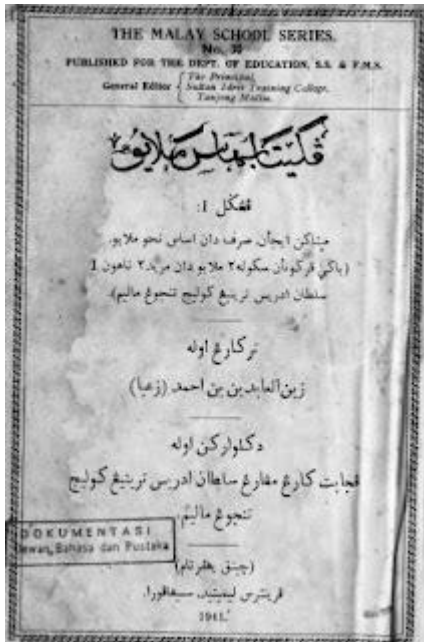 THE MALAY SCHOOL SERIES.
No.
PUBLISHED FOR THE DEPT. OF EDUCATION, S.S. & F.M.S.
General Editor { The Principal,
Sultan Idris Training College,
Tanjong Malim.
ڤليتا بهاس ملايو
ڤڠڬل 1:
ميناكن ايجأن، صرف دان اساس نحو ملايو.
(باݢي ڤرݢونأن سكوله٢ ملايو دان مريد٢ تاهون 1
سلطان ادريس ترينيڠ كوليج تنجوڠ ماليم).
تركارڠ اوله
زين العابدين بن احمد (زعبا)
دكلواركن اوله
ڤجابت كارڠ مڠارڠ سلطان ادريس ترينيڠ كوليج
تنجوڠ ماليم.
DOKUMENTASI
Dewan Bahasa dan Pustaka
ڤرينترس ليميتيد، سيڠاڤورا.
1941.